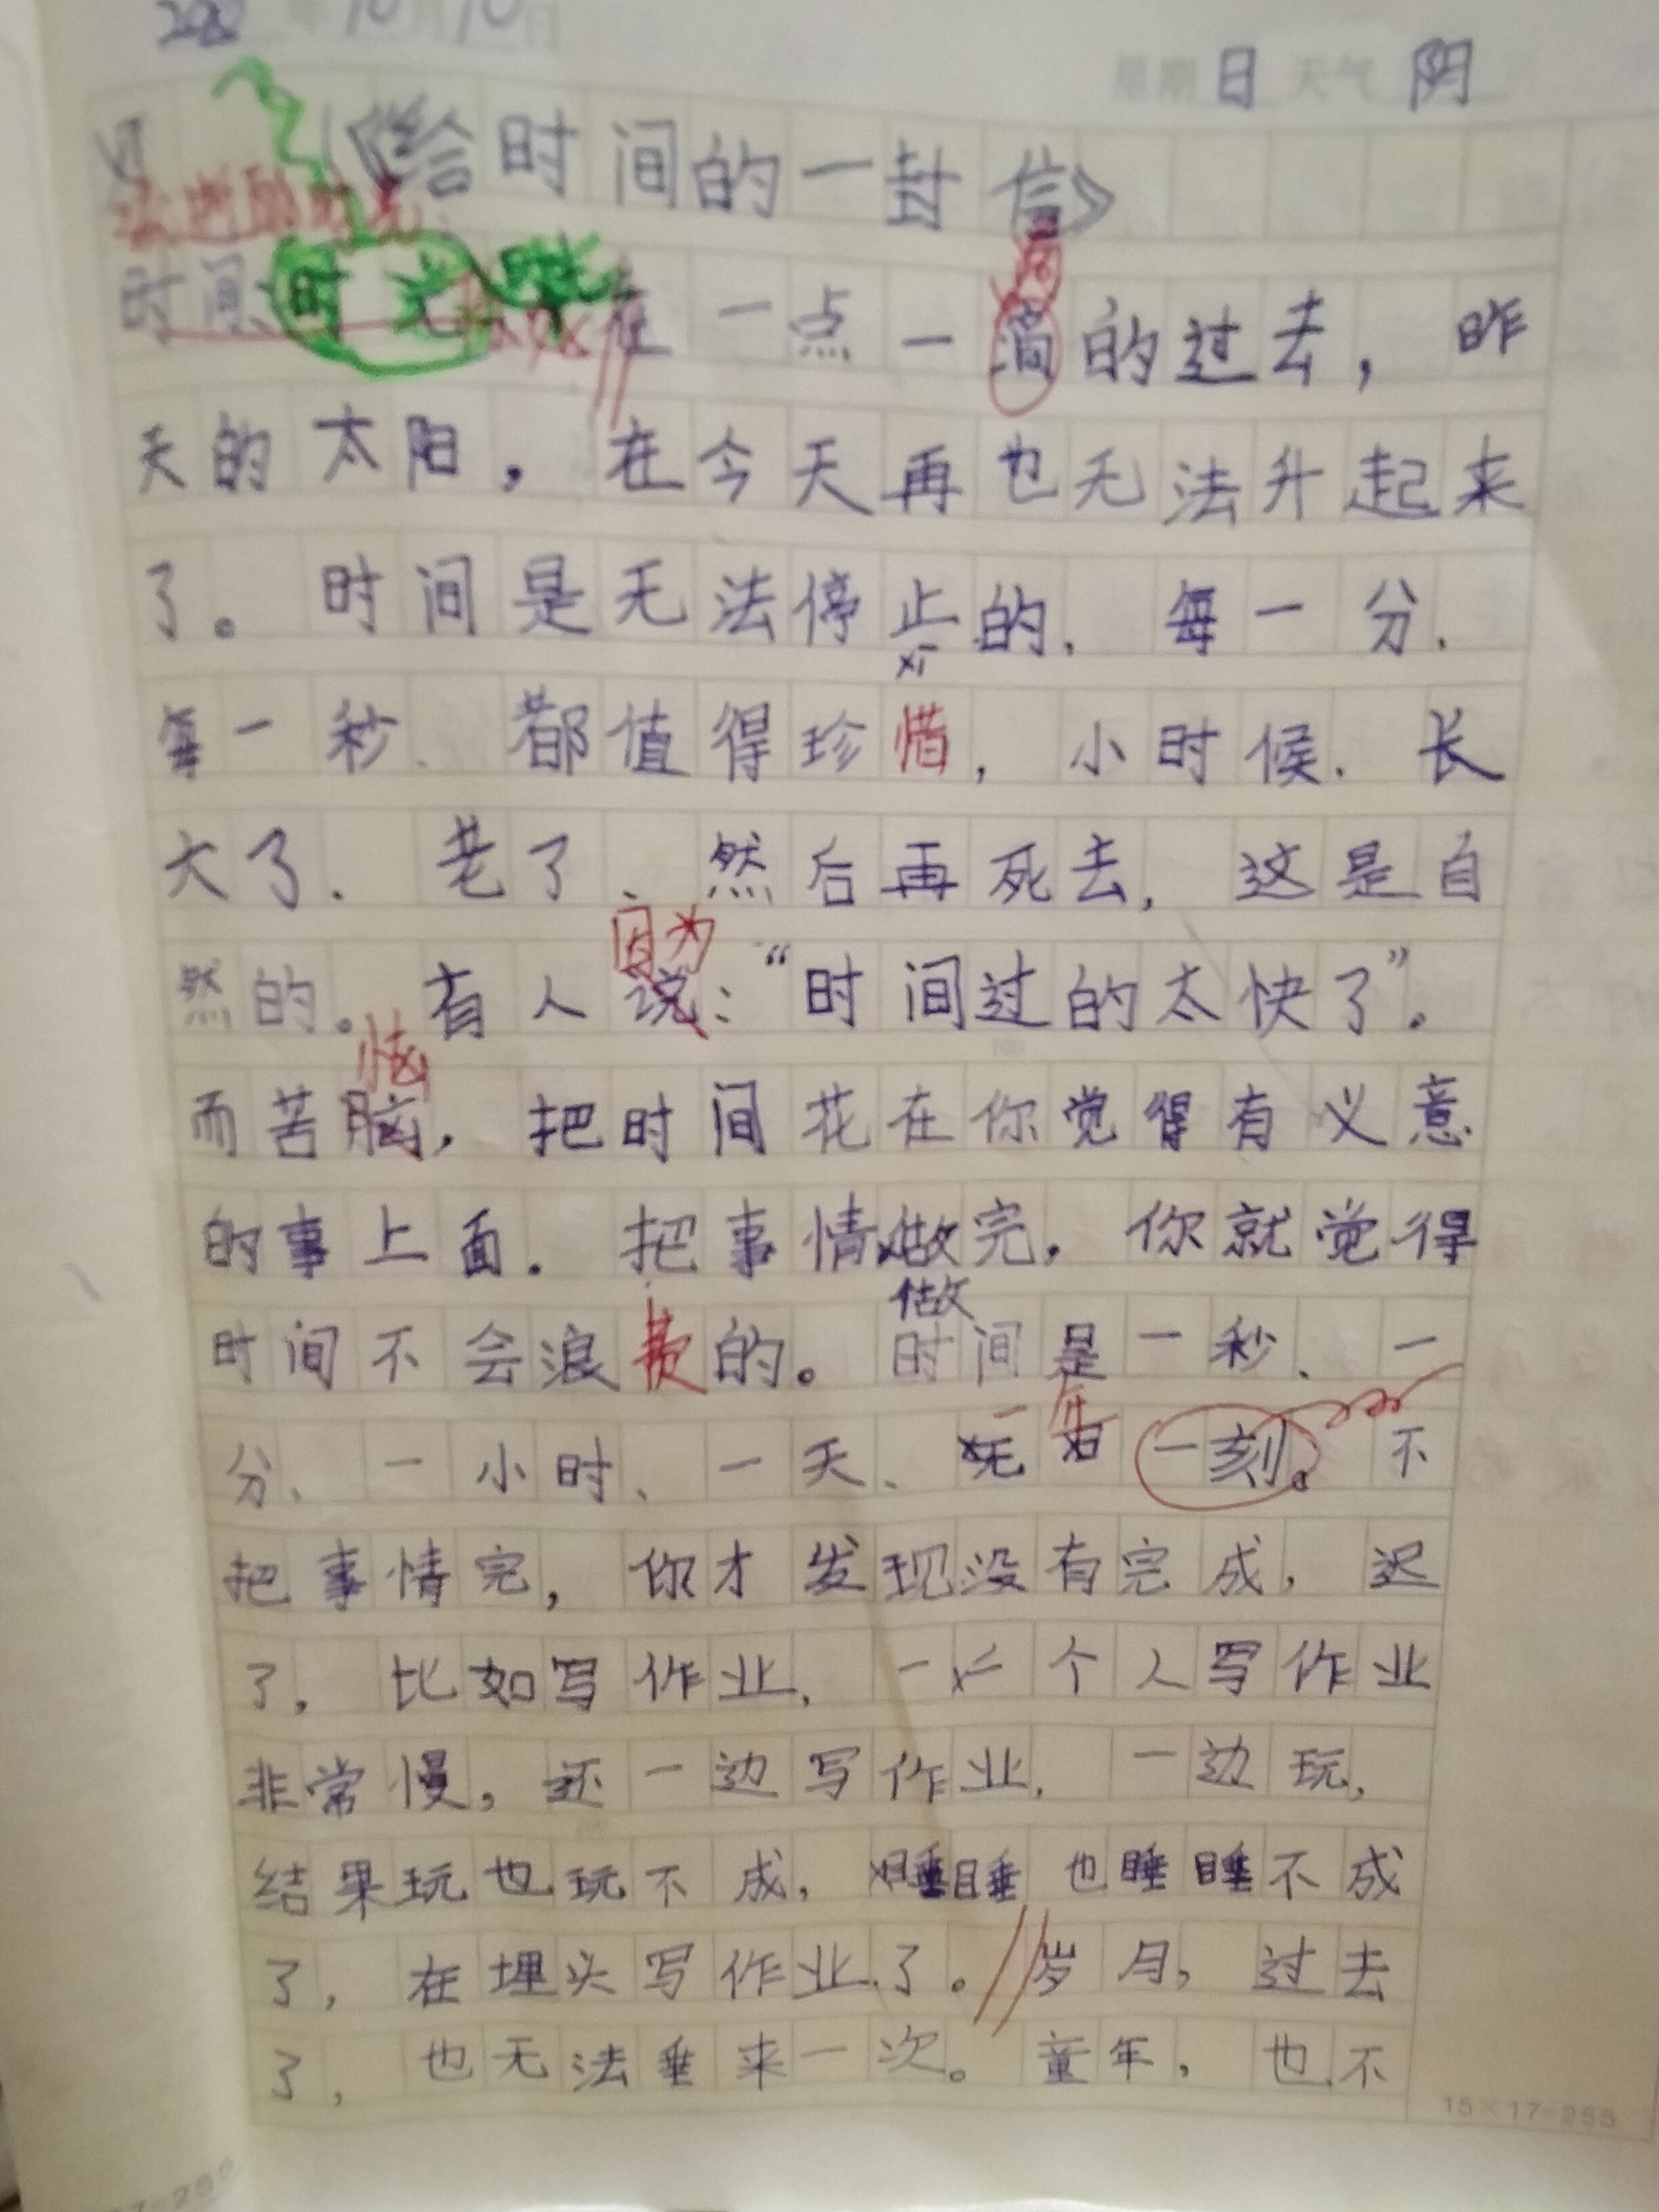 年10月10日
星期日 天气 阴
《给时间的一封信》
时间:时光 在一点一滴的过去，昨
天的太阳，在今天再也无法升起来
了。时间是无法停止的、每一分、
每一秒、都值得珍惜，小时候、长
大了、老了、然后再死去，这是自
因为
然的。有人说：“时间过的太快了”。
恼
而苦脑，把时间花在你觉得有义意
的事上面。把事情做完，你就觉得
做
时间不会浪费的。时间是一秒、一
一年
分、一小时、一天、一刻。不
把事情完，你才发现没有完成，迟
了，比如写作业，一个人写作业
非常慢，还一边写作业，一边玩，
结果玩也玩不成，睡睡也睡睡不成
了，在埋头写作业了。//岁月，过去
了，也无法垂来一次。童年，也不
15×17=255